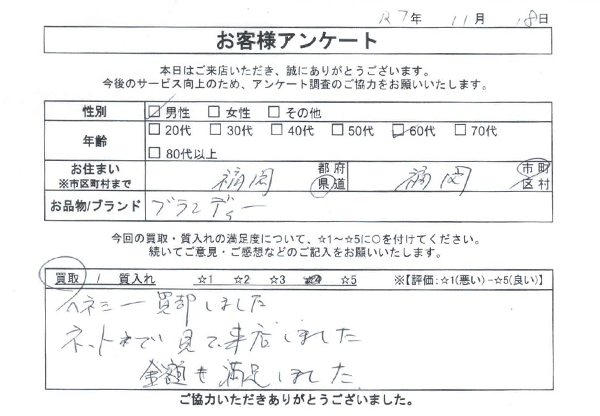 R7年 11月 18日
お客様アンケート
本日はご来店いただき、誠にありがとうございます。
今後のサービス向上のため、アンケート調査のご協力をお願いいたします。
性別 ☑男性 □女性 □その他
年齢 □20代 □30代 □40代 □50代 ☑60代 □70代
□80代以上
お住まい ※市区町村まで 福岡 都府県道 福岡 市町区村
お品物/ブランド ブランディー
今回の買取・質入れの満足度について、☆1～☆5に○を付けてください。
続いてご意見・ご感想などのご記入をお願いいたします。
買取 / 質入れ ☆1 ☆2 ☆3 ☆5 ※【評価:☆1(悪い)-☆5(良い)】
ヘネシー買却しました
ネットで見て来店しました
金額も満足しました
ご協力いただきありがとうございました。